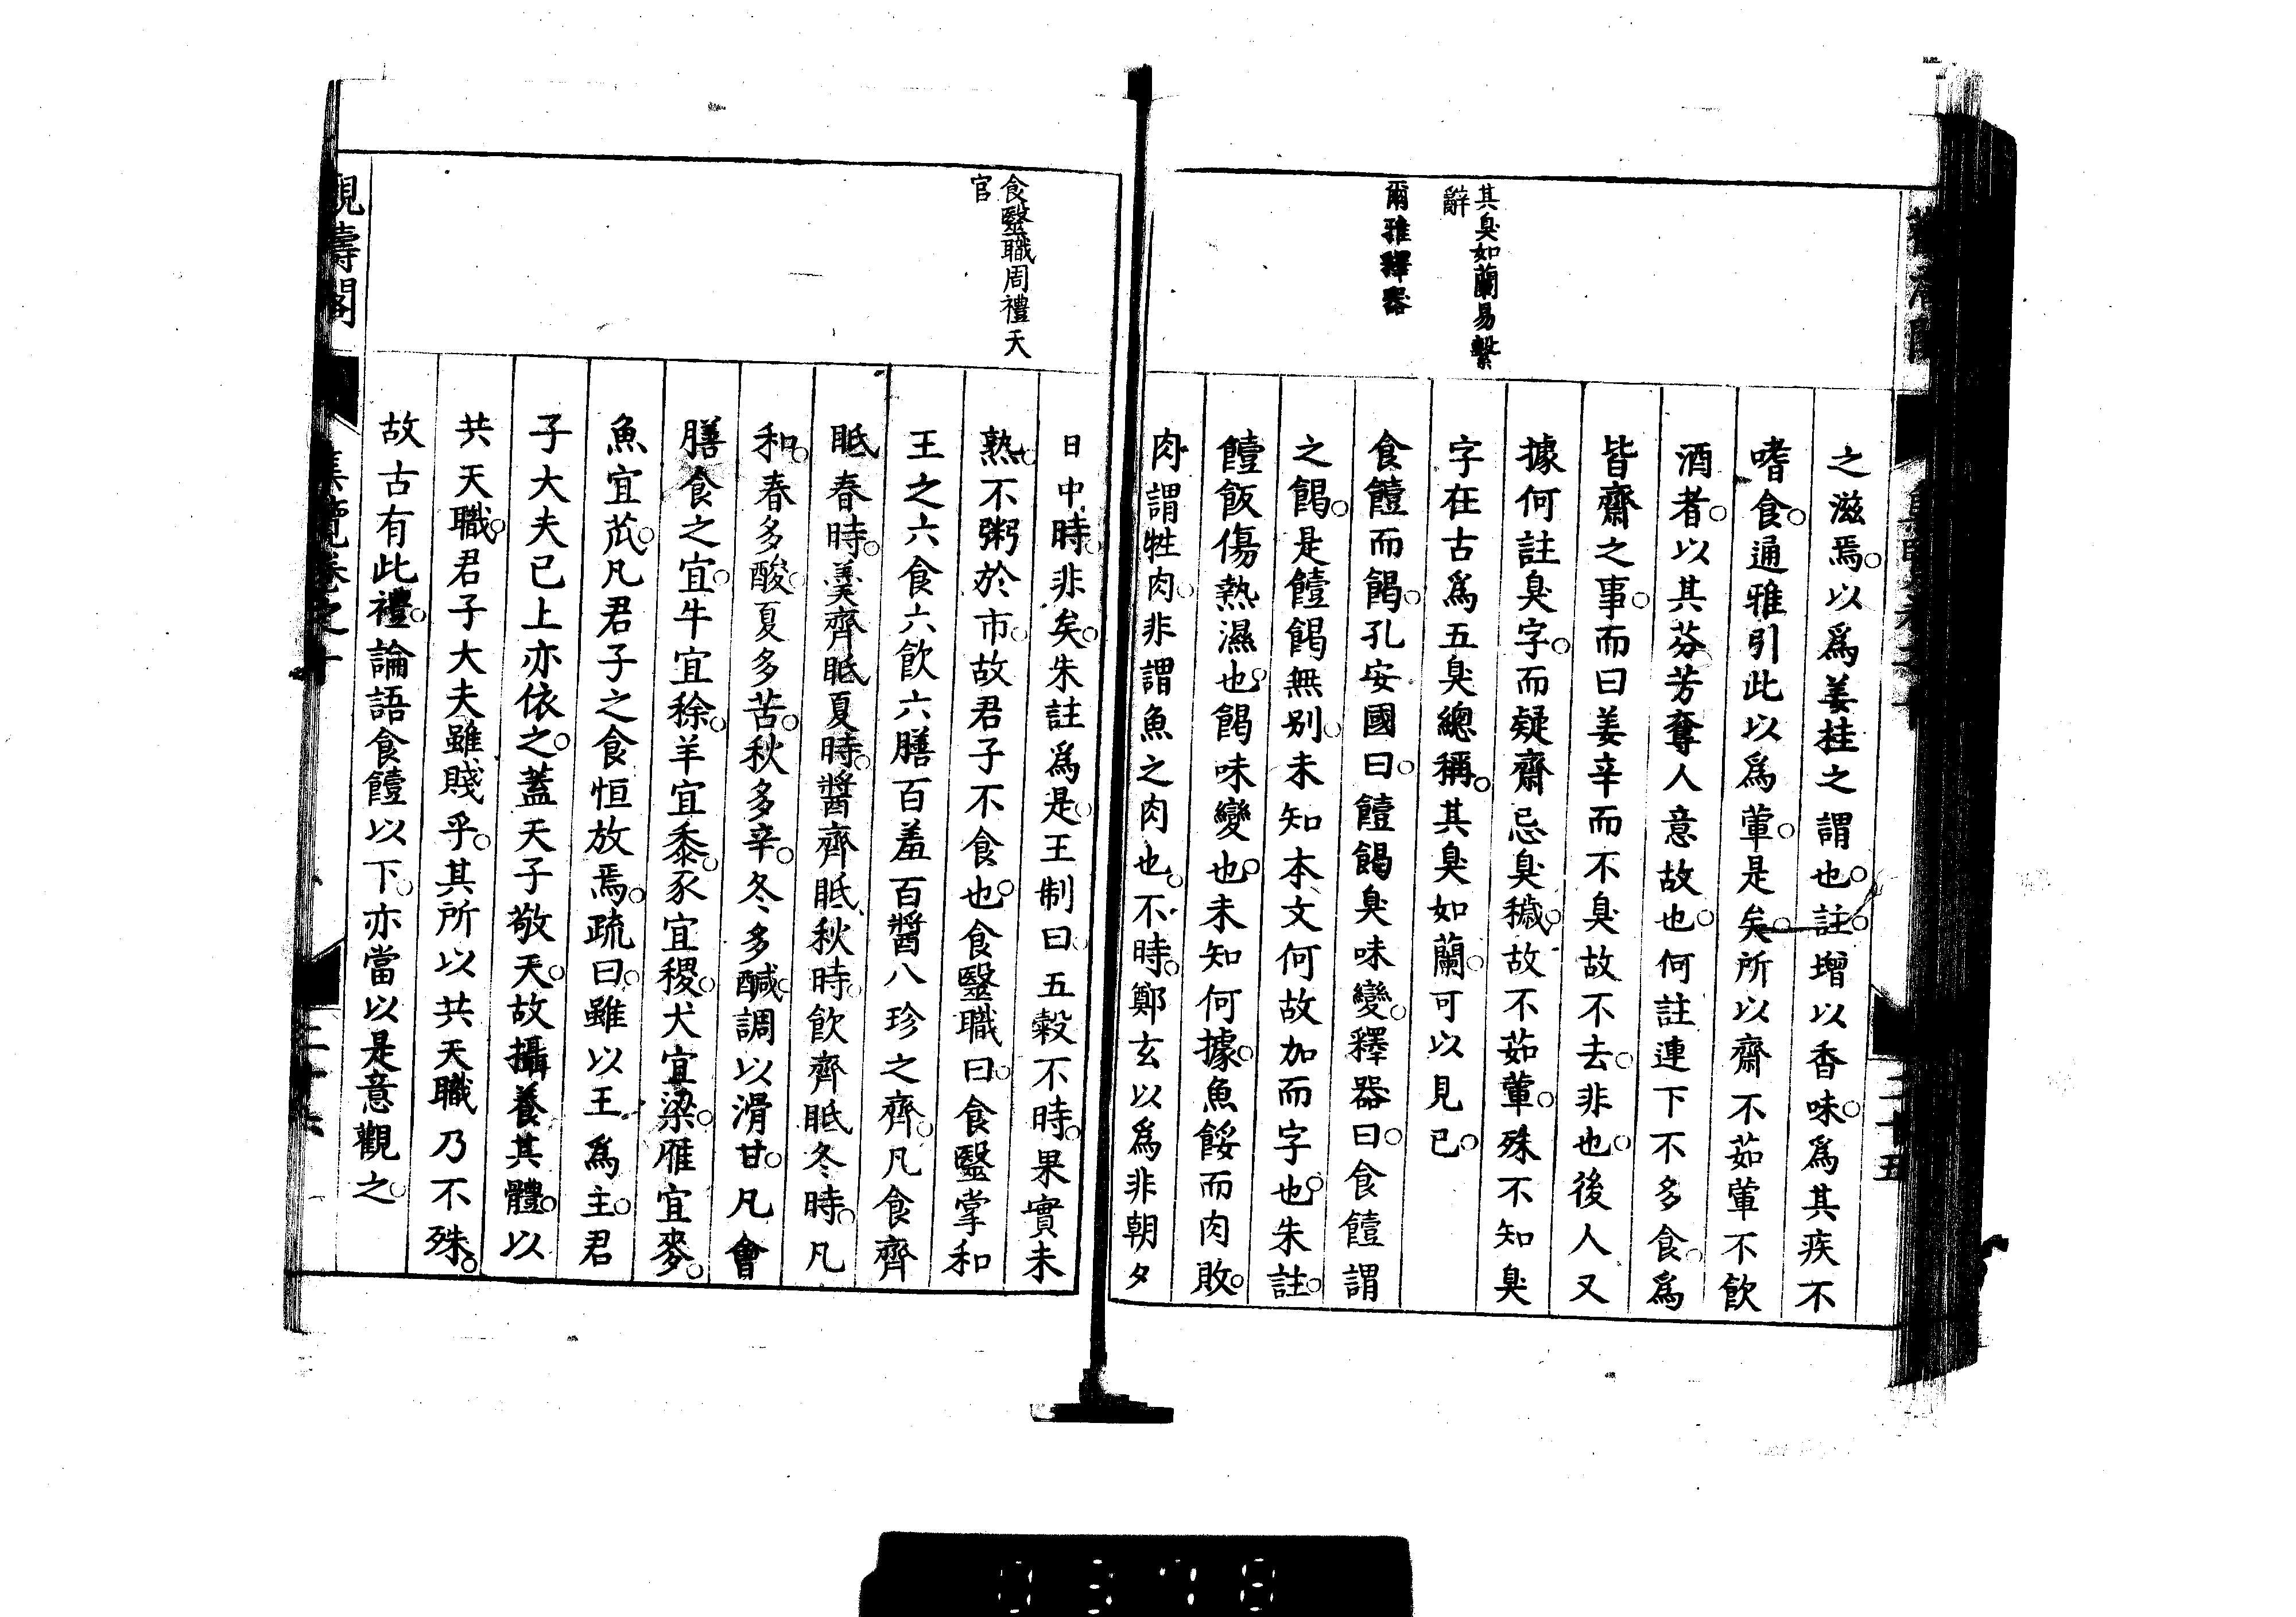 其臭如蘭易繫
辭
爾雅釋器
之滋焉。以爲姜桂之謂也。註。增以香味。爲其疾不
嗜食。通雅引此以爲葷。是矣。所以齋不茹葷不飲
酒者。以其芬芳奪人意故也。何註連下不多食。爲
皆齋之事。而曰姜辛而不臭故不去。非也。後人又
據何註臭字。而疑齋忌臭穢。故不茹葷。殊不知臭
字在古爲五臭總稱。其臭如蘭。可以見已。
食饐而餲。孔安國曰。饐餲臭味變。釋器曰。食饐謂
之餲。是饐餲無別。未知本文何故加而字也。朱註。
饐飯傷熱濕也。餲味變也。未知何據。魚餒而肉敗。
肉謂牲肉。非謂魚之肉也。不時。鄭玄以爲非朝夕
食毉職周禮天
官
日中時。非矣。朱註爲是。王制曰。五穀不時。果實未
熟。不粥於市。故君子不食也。食毉職曰。食毉掌和
王之六食六飲六膳百羞百醬八珍之齊。凡食齊
眂春時。羹齊眂夏時。醬齊眂秋時。飲齊眂冬時。凡
和。春多酸。夏多苦。秋多辛。冬多鹹。調以滑甘。凡會
膳食之宜。牛宜稌。羊宜黍。豕宜稷。犬宜粱。雁宜麥。
魚宜苽。凡君子之食恒放焉。疏曰。雖以王爲主。君
子大夫已上亦依之。蓋天子敬天。故攝養其體。以
共天職。君子大夫雖賤乎。其所以共天職乃不殊。
故古有此禮。論語食饐以下。亦當以是意觀之。
觀濤閣
集覽卷之十